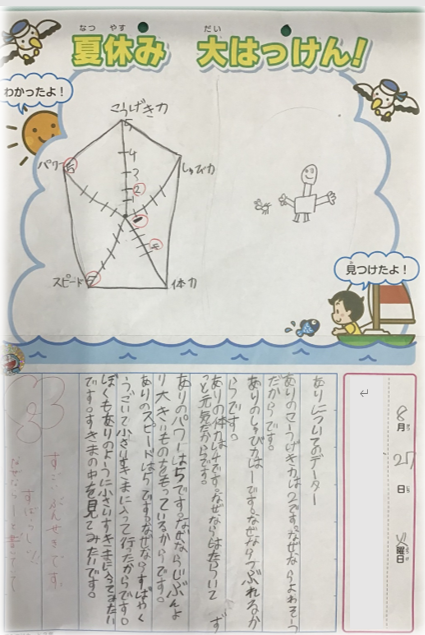 夏休み 大はっけん!
なつ やす だい
わかったよ!
こうげき力
5
4
3
2
パワー
5
しゅび力
スピード
体力
見つけたよ!
8月27日 曜日
ありについてのデーター
ありのこうげき力は2です。なぜならよわそう
だからです。
ありのしゅび力は1です。なぜならつぶれるか
らです。
ありの体力は4です。なぜならはたらいて ず
っと元気だからです。
ありのパワーは5です。なぜならじぶんよ
り大きいものをもっているからです。
ありのスピードは5です。なぜならすばやく
うごいて小さいすきまに入って行ったからです。
ぼくもありのように小さいすきまに入ってみたい
です。すきまの中を見てみたいです。
すごいぶんせきです